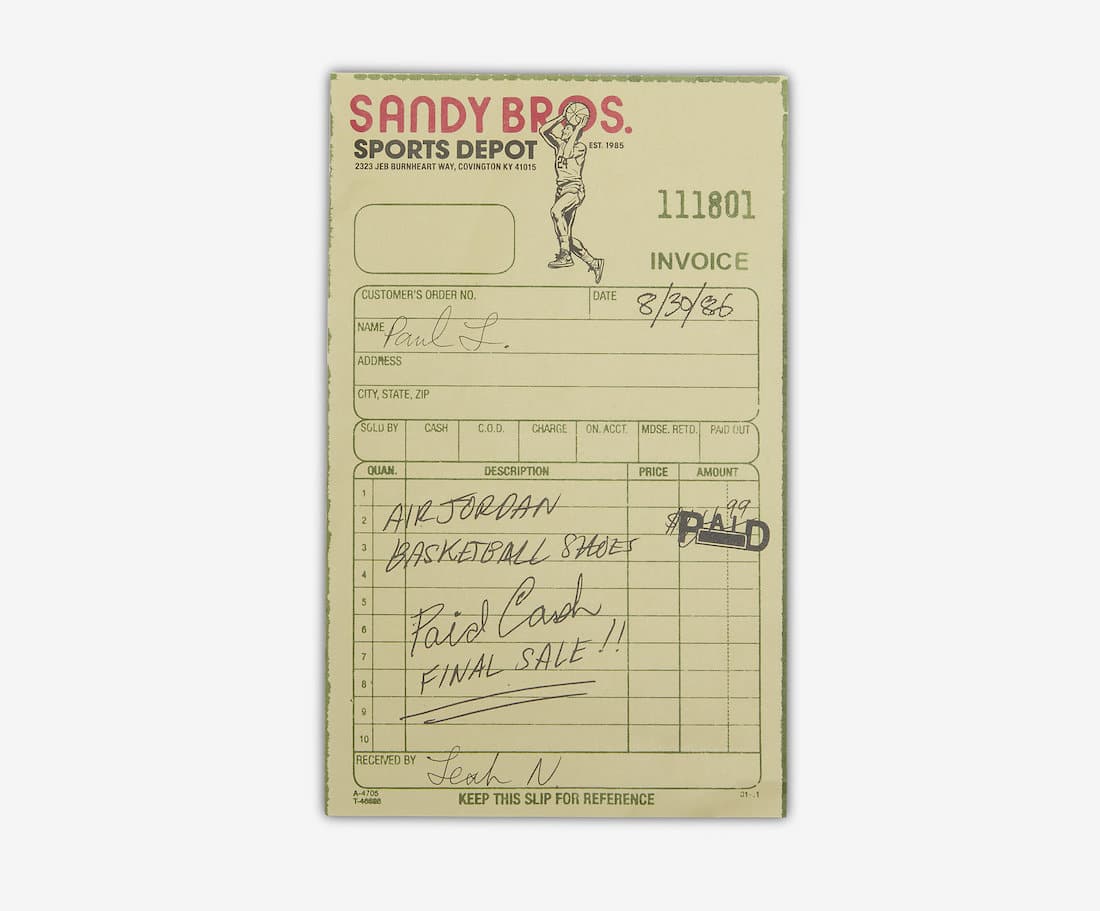 SANDY BROS.
SPORTS DEPOT
EST. 1985
2323 JEB BURNHEART WAY, COVINGTON KY 41015
24
111801
INVOICE
CUSTOMER'S ORDER NO. DATE 8/30/86
NAME Paul L.
ADDRESS
CITY, STATE, ZIP
SOLD BY CASH C.O.D. CHARGE ON. ACCT. MDSE. RETD. PAID OUT
QUAN. DESCRIPTION PRICE AMOUNT
1
2 AIR JORDAN
PAID
3 BASKETBALL SHOES
4
5
6 Paid Cash
7 FINAL SALE!!
8
9
10
RECEIVED BY Leah N.
A-4705
KEEP THIS SLIP FOR REFERENCE